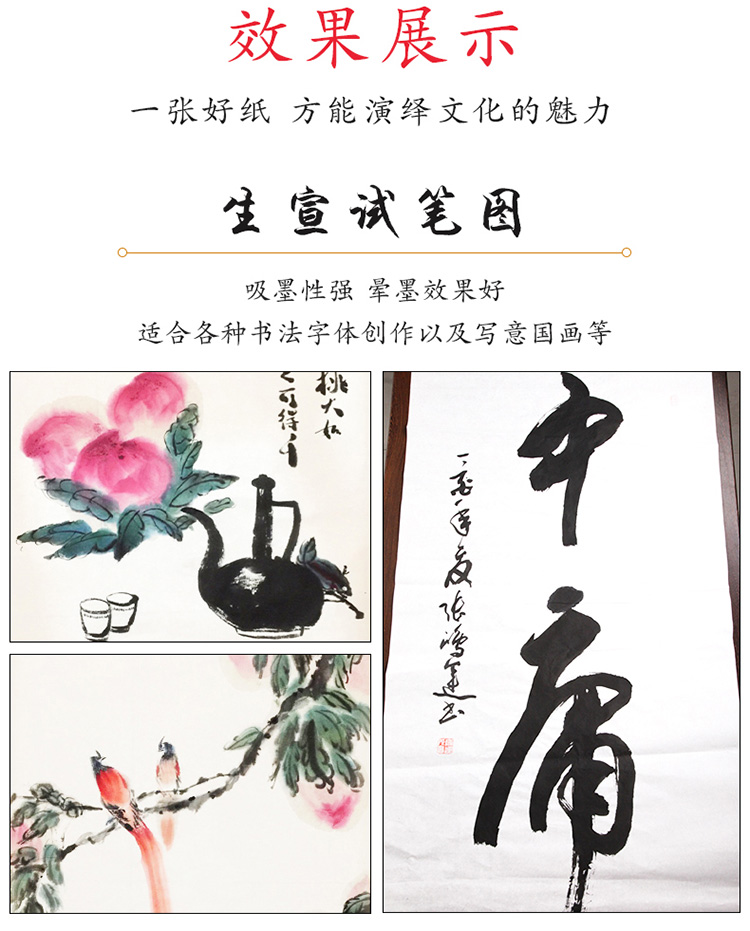 效果展示
一张好纸 方能演绎文化的魅力
生宣试笔图
吸墨性强 晕墨效果好
适合各种书法字体创作以及写意国画等
桃大如
可得千
中庸